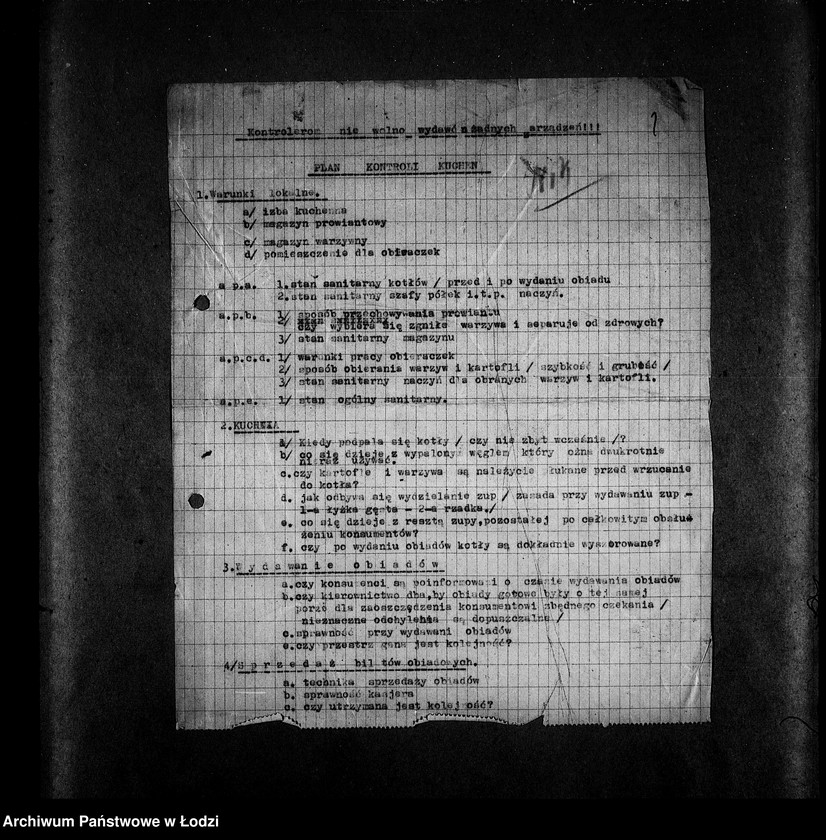 Kontrolerom nie wolno wydawć żadnych arządzeń!!!
PLAN KONTROLI KUCHEN
1.Warunki lokalne.
a/ izba kuchenna
b/ magazyn prowiantowy
c/ magazyn warzywny
d/ pomieszczenie dla obieaczek
a p.a. 1.stan sanitarny kotłów / przed i po wydaniu obiadu
2.stan sanitarny szafy półek i.t.p. naczyń.
a.p.b. 1/ sposób przechowywania prowiantu
2/ czy wybiera się zgniłe warzywa i separuje od zdrowych?
3/ stan sanitarny magazynu
a.p.c.d. 1/ warunki pracy obieraczek
2/ sposób obierania warzyw i kartofli / szybkość i grubość /
3/ stan sanitarny naczyń dla obranych warzyw i kartofli.
a.p.e. 1/ stan ogólny sanitarny.
2.KUCHNIA
a/ Kiedy podpala się kotły / czy nie zbyt wcześnie /?
b/ co się dzieje z wypalonym węglem który ożna dwukrotnie
nieraz używać.
c.czy kartofle i warzywa są należycie łukane przed wrzucanie
do kotła?
d. jak odbywa się wydzielanie zup / zasada przy wydawaniu zup -
1-a łyżka gęsta - 2-a rzadka./
e. co się dzieje z resztą zupy,pozostałej po całkowitym obsłu
żeniu konsumentów?
f. czy po wydaniu obiadów kotły są dokładnie wyszorowane?
3.Wydawanie obiadów
a.czy konsumenci są poinformowani o czasie wydawania obiadów
b.czy kierownictwo dba,by obiady gotowe były o tej samej
porze dla zaoszczędzenia konsumentowi zbędnego czekania /
nieznaczne odchylenia są dopuszczalne /
c.sprawność przy wydawani obiadów
e.czy przestrz gana jest kolejność?
4/Sprzedaż bil tów obiadowych.
a. technika sprzedaży obiadów
b. sprawność kasjera
c. czy utrzymana jest kolej ość?
Archiwum Państwowe w Łodzi